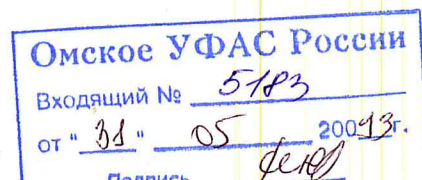 Омское УФАС России
Входящий № 5183
от " 31 " 05 20013г.
Подпись